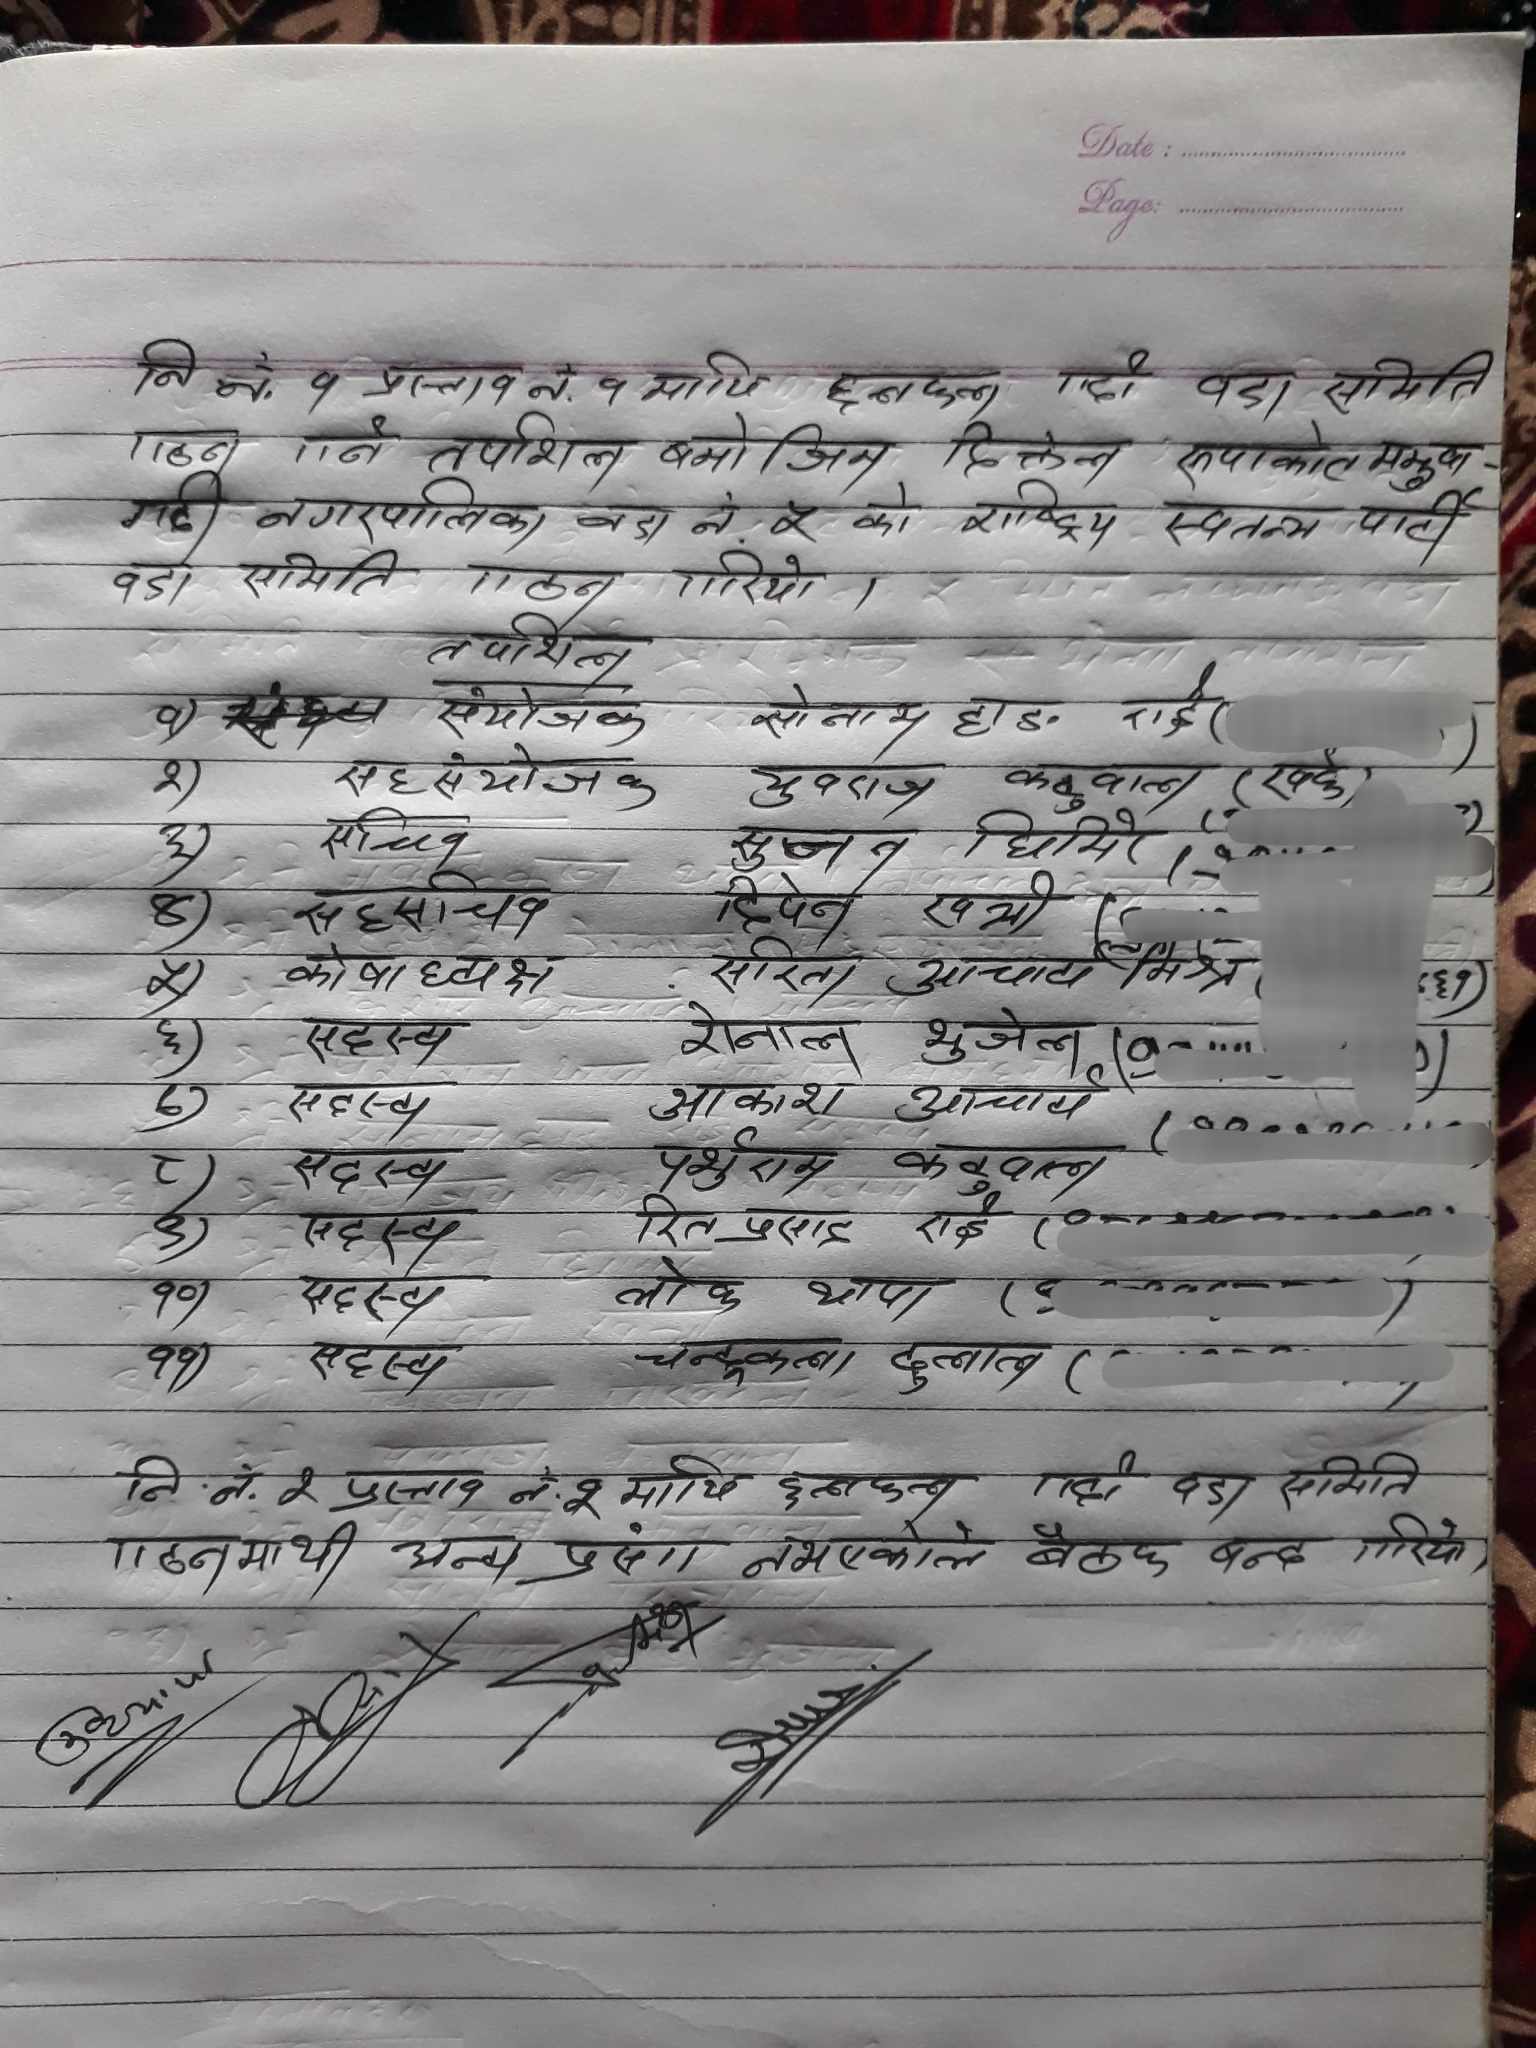 Date : ....................
Page: ....................
नि नं. १ प्रस्ताव नं. १ माथि छलफल गर्दा वडा समिति
गठन गर्न तपशिल बमोजिम दिक्तेल रुपाकोट मझुवा-
गढी नगरपालिका वडा नं. ५ को राष्ट्रिय स्वतन्त्र पार्टी
वडा समिति गठन गरियो ।
तपशिल
१) संयोजक सोनाम हाङ राई ( )
२) सहसंयोजक युवराज कटुवाल (खड्के)
३) सचिव सुजन घिमिरे (
४) सहसचिव दिपेन खत्री (
५) कोषाध्यक्ष सरिता आचार्य मिश्र ( ६६१)
६) सदस्य रोनाल भुजेल ( )
७) सदस्य आकाश आचार्य (
८) सदस्य पर्शुराम कटुवाल
९) सदस्य रित प्रसाद राई (
१०) सदस्य लोक थापा ( )
११) सदस्य चन्द्रकला दुलाल ( )
नि. नं. २ प्रस्ताव नं. २ माथि छलफल गर्दा वडा समिति
गठनमाथी अन्य प्रसंग नभएकोले बैठक बन्द गरियो,